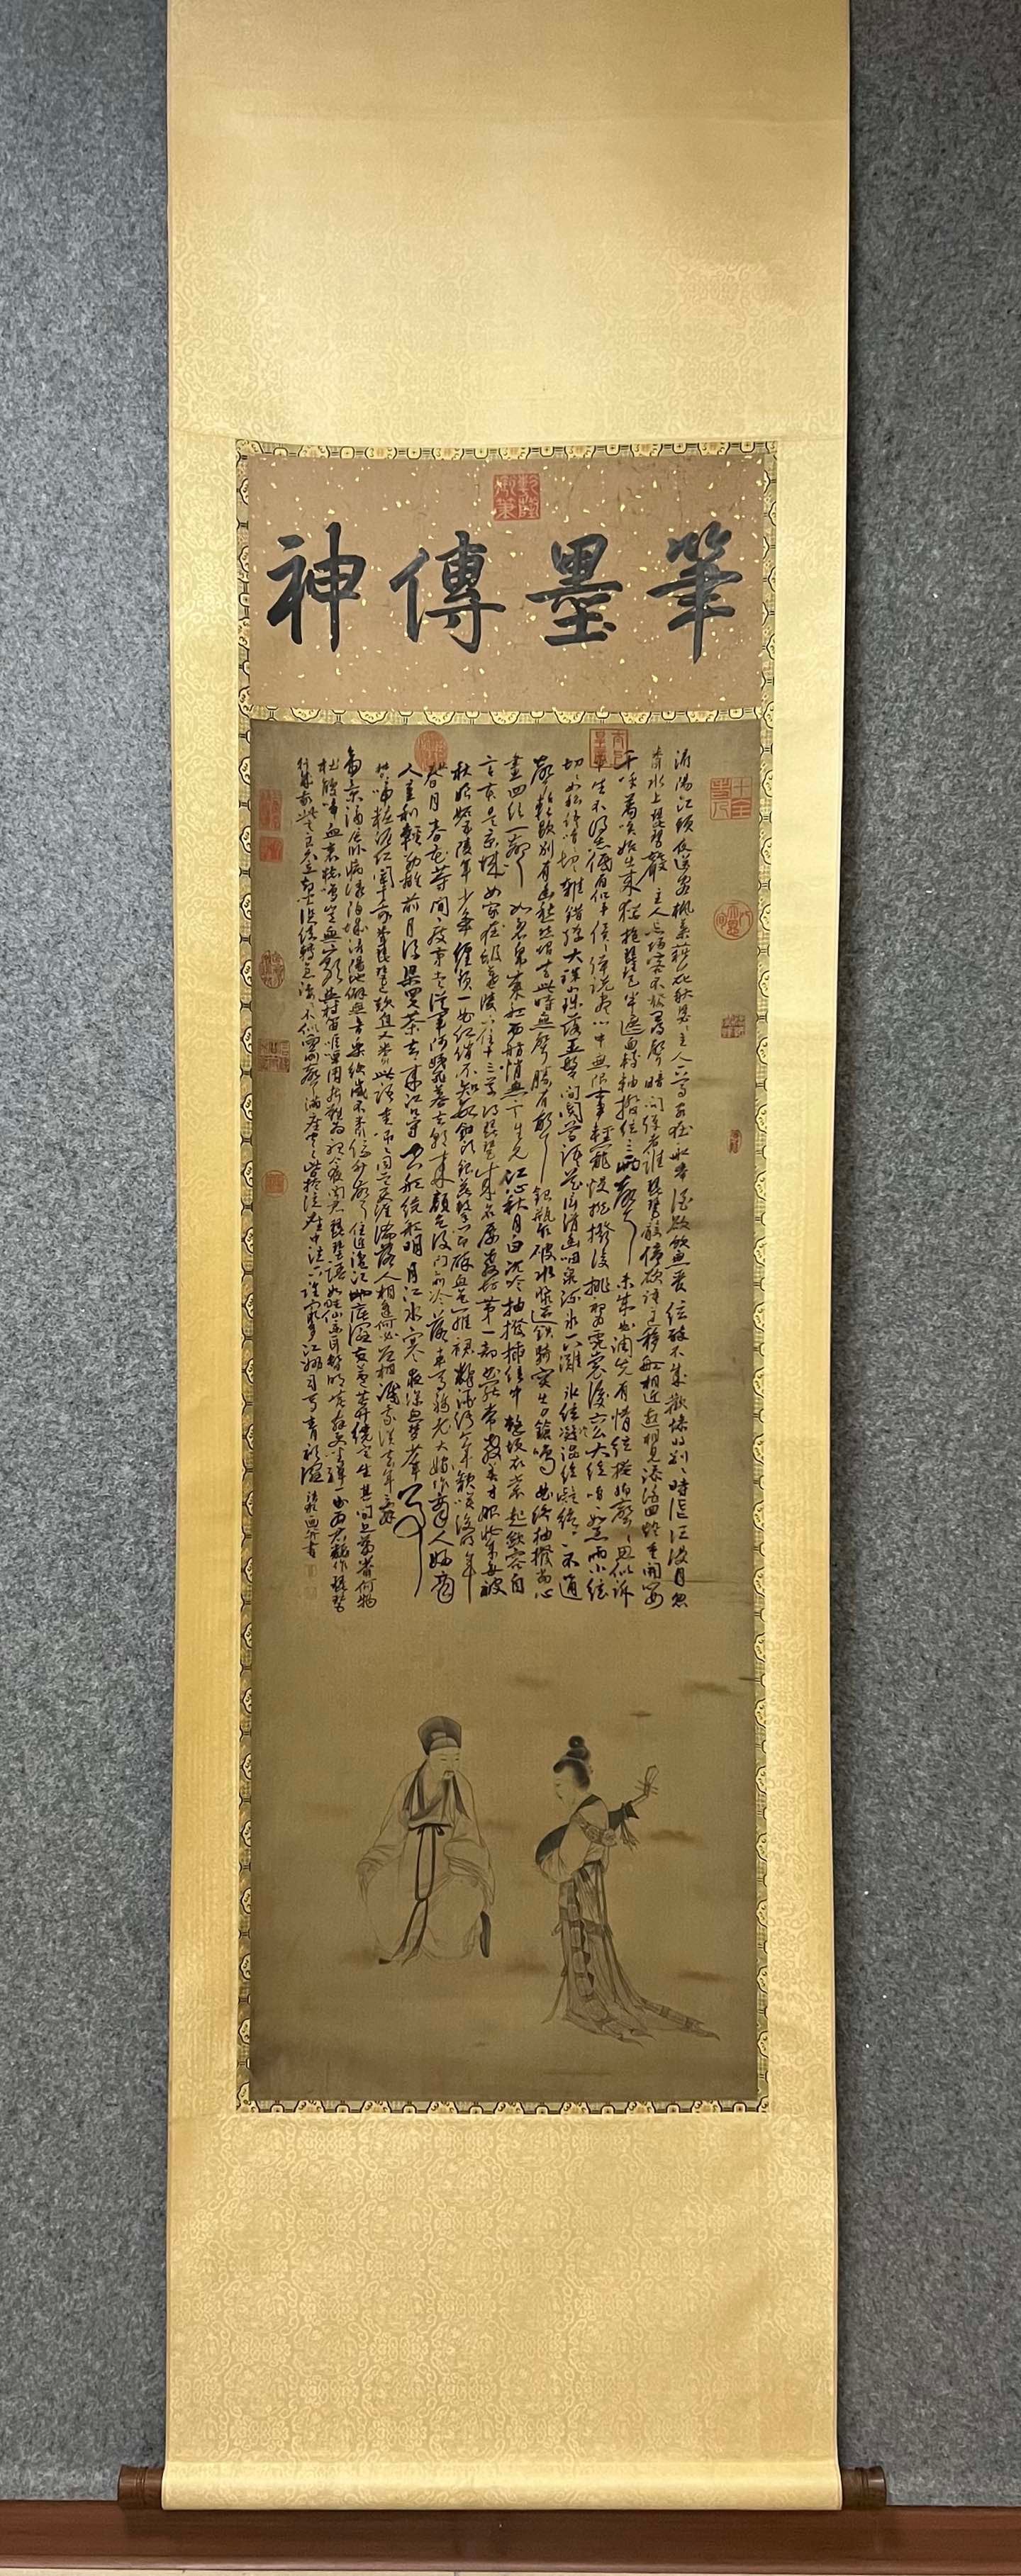 乾隆御筆
筆墨傳神
潯陽江頭夜送客楓葉荻花秋瑟瑟主人下馬客在船舉酒欲飲無管絃醉不成歡慘將別別時茫茫江浸月忽
聞水上琵琶聲主人忘歸客不發尋聲暗問彈者誰琵琶聲停欲語遲移船相近邀相見添酒回燈重開宴
千呼萬喚始出來猶抱琵琶半遮面轉軸撥絃三兩聲未成曲調先有情絃絃掩抑聲聲思似訴
生不得志低眉信手續續彈說盡心中無限事輕攏慢撚撥復挑初為霓裳後六么大絃嘈嘈如急雨小絃
切切如私語嘈嘈切切雜錯彈大珠小珠落玉盤間關鶯語花底滑幽咽泉流冰下灘冰絃凝澀絃凝絕凝絕不通
聲暫歇別有幽愁暗恨生此時無聲勝有聲銀瓶乍破水漿迸鐵騎突出刀鎗鳴曲終抽撥當心
畫四絃一聲如裂帛東船西舫悄無言唯見江心秋月白沉吟抽撥插絃中整頓衣裳起斂容自
言本是京城女家在蝦蟇陵下住十三學得琵琶成名屬教坊第一部曲罷常教善才服妝成每被
秋娘妬五陵年少爭纏頭一曲紅綃不知數鈿頭銀篦擊節碎血色羅裙翻酒污今年歡笑復明年
秋月春風等閒度弟走從軍阿姨死暮去朝來顏色故門前冷落車馬稀老大嫁作商人婦商
人重利輕別離前月浮梁買茶去去來江口守空船繞船明月江水寒夜深忽夢少年事
夢啼妝淚紅闌干我聞琵琶已歎息又聞此語重唧唧同是天涯淪落人相逢何必曾相識我從去年辭
帝京謫居臥病潯陽城潯陽地僻無音樂終歲不聞絲竹聲住近湓江地低濕黃蘆苦竹繞宅生其間旦暮聞何物
杜鵑啼血猿哀鳴豈無山歌與村笛嘔啞嘲哳難為聽今夜聞君琵琶語如聽仙樂耳暫明莫辭更坐彈一曲為君翻作琵琶
行感我此言良久立却坐促絃絃轉急淒淒不似向前聲滿座重聞皆掩泣座中泣下誰最多江州司馬青衫濕
畫并書